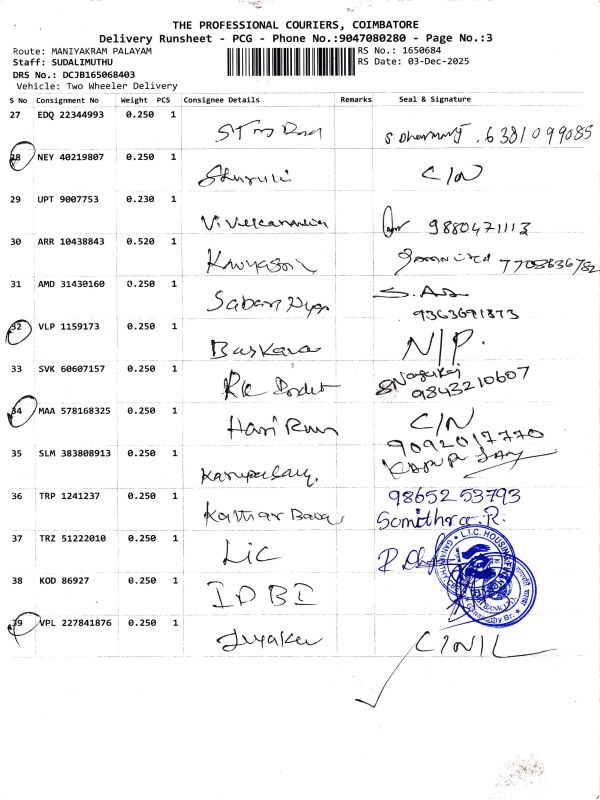 THE PROFESSIONAL COURIERS, COIMBATORE
Delivery Runsheet - PCG - Phone No.:9047080280 - Page No.:3
Route: MANIYAKRAM PALAYAM RS No.: 1650684
Staff: SUDALIMUTHU RS Date: 03-Dec-2025
DRS No.: DCJB165068403
Vehicle: Two Wheeler Delivery
S No Consignment No Weight PCS Consignee Details Remarks Seal & Signature
27 EDQ 22344993 0.250 1
S. Dharmaraj . 6381099085
28 NEY 40219807 0.250 1
C/N
29 UPT 9007753 0.230 1
Vivekananda 9880471113
30 ARR 10438843 0.520 1
7708636782
31 AMD 31430160 0.250 1
9363691873
32 VLP 1159173 0.250 1
Baskara N/P.
33 SVK 60607157 0.250 1
Nagaraj
9843210607
34 MAA 578168325 0.250 1
Hari Ram C/N
9092017770
35 SLM 383808913 0.250 1
Karupasamy.
36 TRP 1241237 0.250 1
9865253793
Kathar Bava Samithra. R.
37 TRZ 51222010 0.250 1
LIC
L.I.C. HOUSING
38 KOD 86927 0.250 1
IDBI
39 VPL 227841876 0.250 1
C/N/L